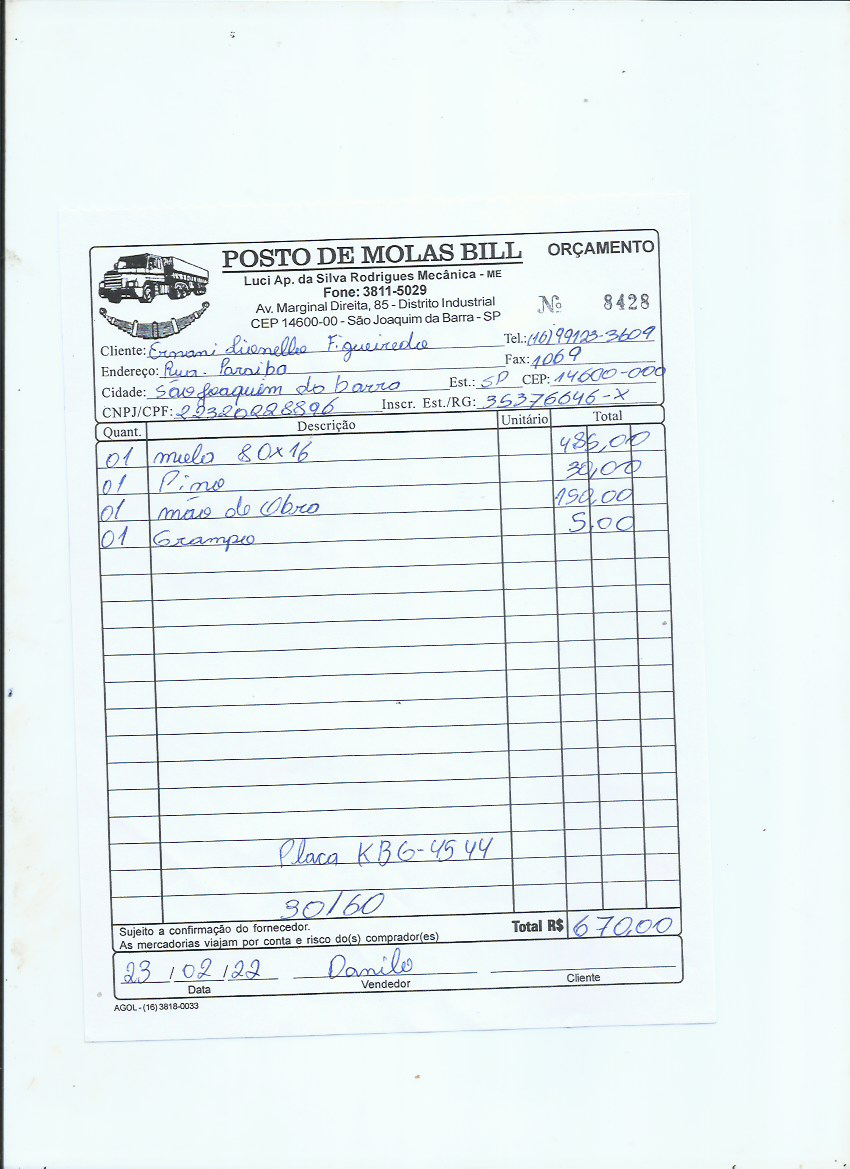 POSTO DE MOLAS BILL ORÇAMENTO
Luci Ap. da Silva Rodrigues Mecânica - ME
Fone: 3811-5029
Av. Marginal Direita, 85 - Distrito Industrial Nº 8428
CEP 14600-00 - São Joaquim da Barra - SP
Cliente: Ernani Lionello Figueiredo Tel.: (16) 99123-3609
Endereço: Rua. Paraiba Fax: 1069
Cidade: São Joaquim do barra Est.: SP CEP: 14600-000
CNPJ/CPF: 22320228896 Inscr. Est./RG: 35376646-X
Quant. Descrição Unitário Total
01 mola 80x16 485,00
01 Pino 30,00
01 mão de Obra 150,00
01 Grampo 5,00
Placa KBG-4544
30/60
Sujeito a confirmação do fornecedor.
As mercadorias viajam por conta e risco do(s) comprador(es) Total R$ 670,00
23 / 02 / 22 Danilo
Data Vendedor Cliente
AGOL - (16) 3818-0033